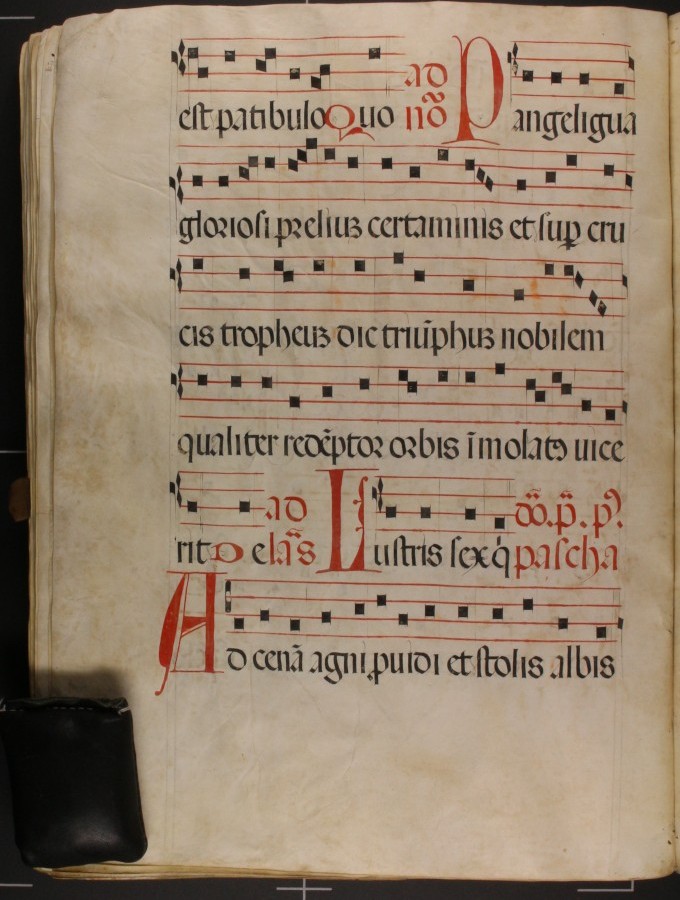 est patibulo Quo ad no᷈ Pangeligua
gloriosi preliuꝫ certaminis et sup̱ cru
cis tropheuꝫ dic triūphuꝫ nobilem
qualiter redēptor orbis īmolatꝰ uice
rit D e ad la᷈s Lustris sex q̇ dō. p̄. p. pascha
Ad cenā agni ꝓuidi et stolis albis